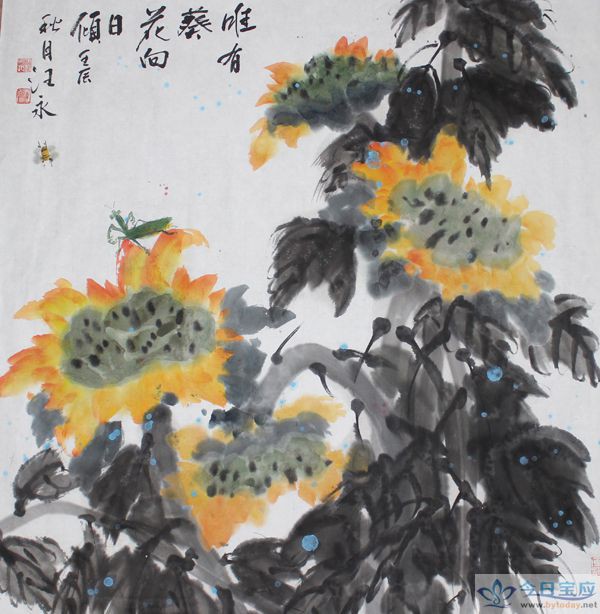 唯有
葵
花向
日
倾 壬辰
秋月汪永
今日宝应
www.bytoday.net